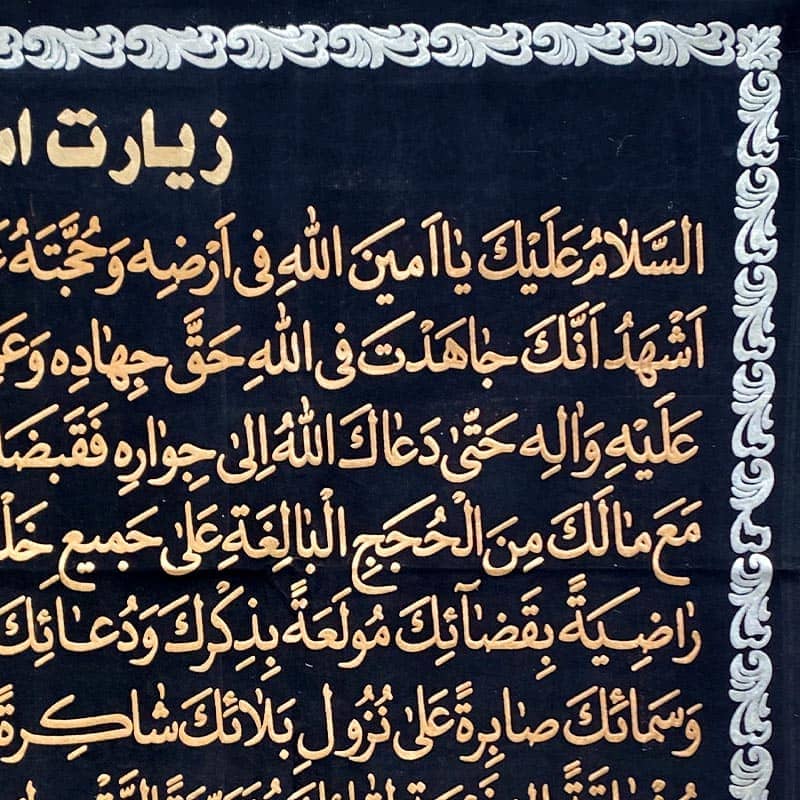 زيارت
السَّلامُ عَلَيْكَ يا اَمينَ اللهِ فى اَرْضِه وَحُجَّتَهُ
اَشْهَدُ اَنَّكَ جاهَدْتَ فى اللهِ حَقَّ جِهادِه وَ
عَلَيْهِ وَالِه حَتّى دَعاكَ اللهُ اِلى جِوارِه فَقَبَضَ
مَعَ مالَكَ مِنَ الْحُجَجِ الْبالِغَةِ عَلى جَميعِ خَلْ
راضِيَةً بِقَضآئِكَ مُولَعَةً بِذِكْرِكَ وَدُعائِكَ
وَسَمائِكَ صابِرَةً عَلى نُزُولِ بَلائِكَ شاكِرَةً